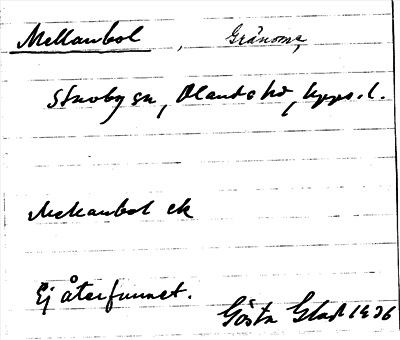 Mellanbol , Gränoma,
Skuoby sn, Olands hd, Upps. l.
Mekanbol ek
Ej återfunnet.
Gösta Glad 1936